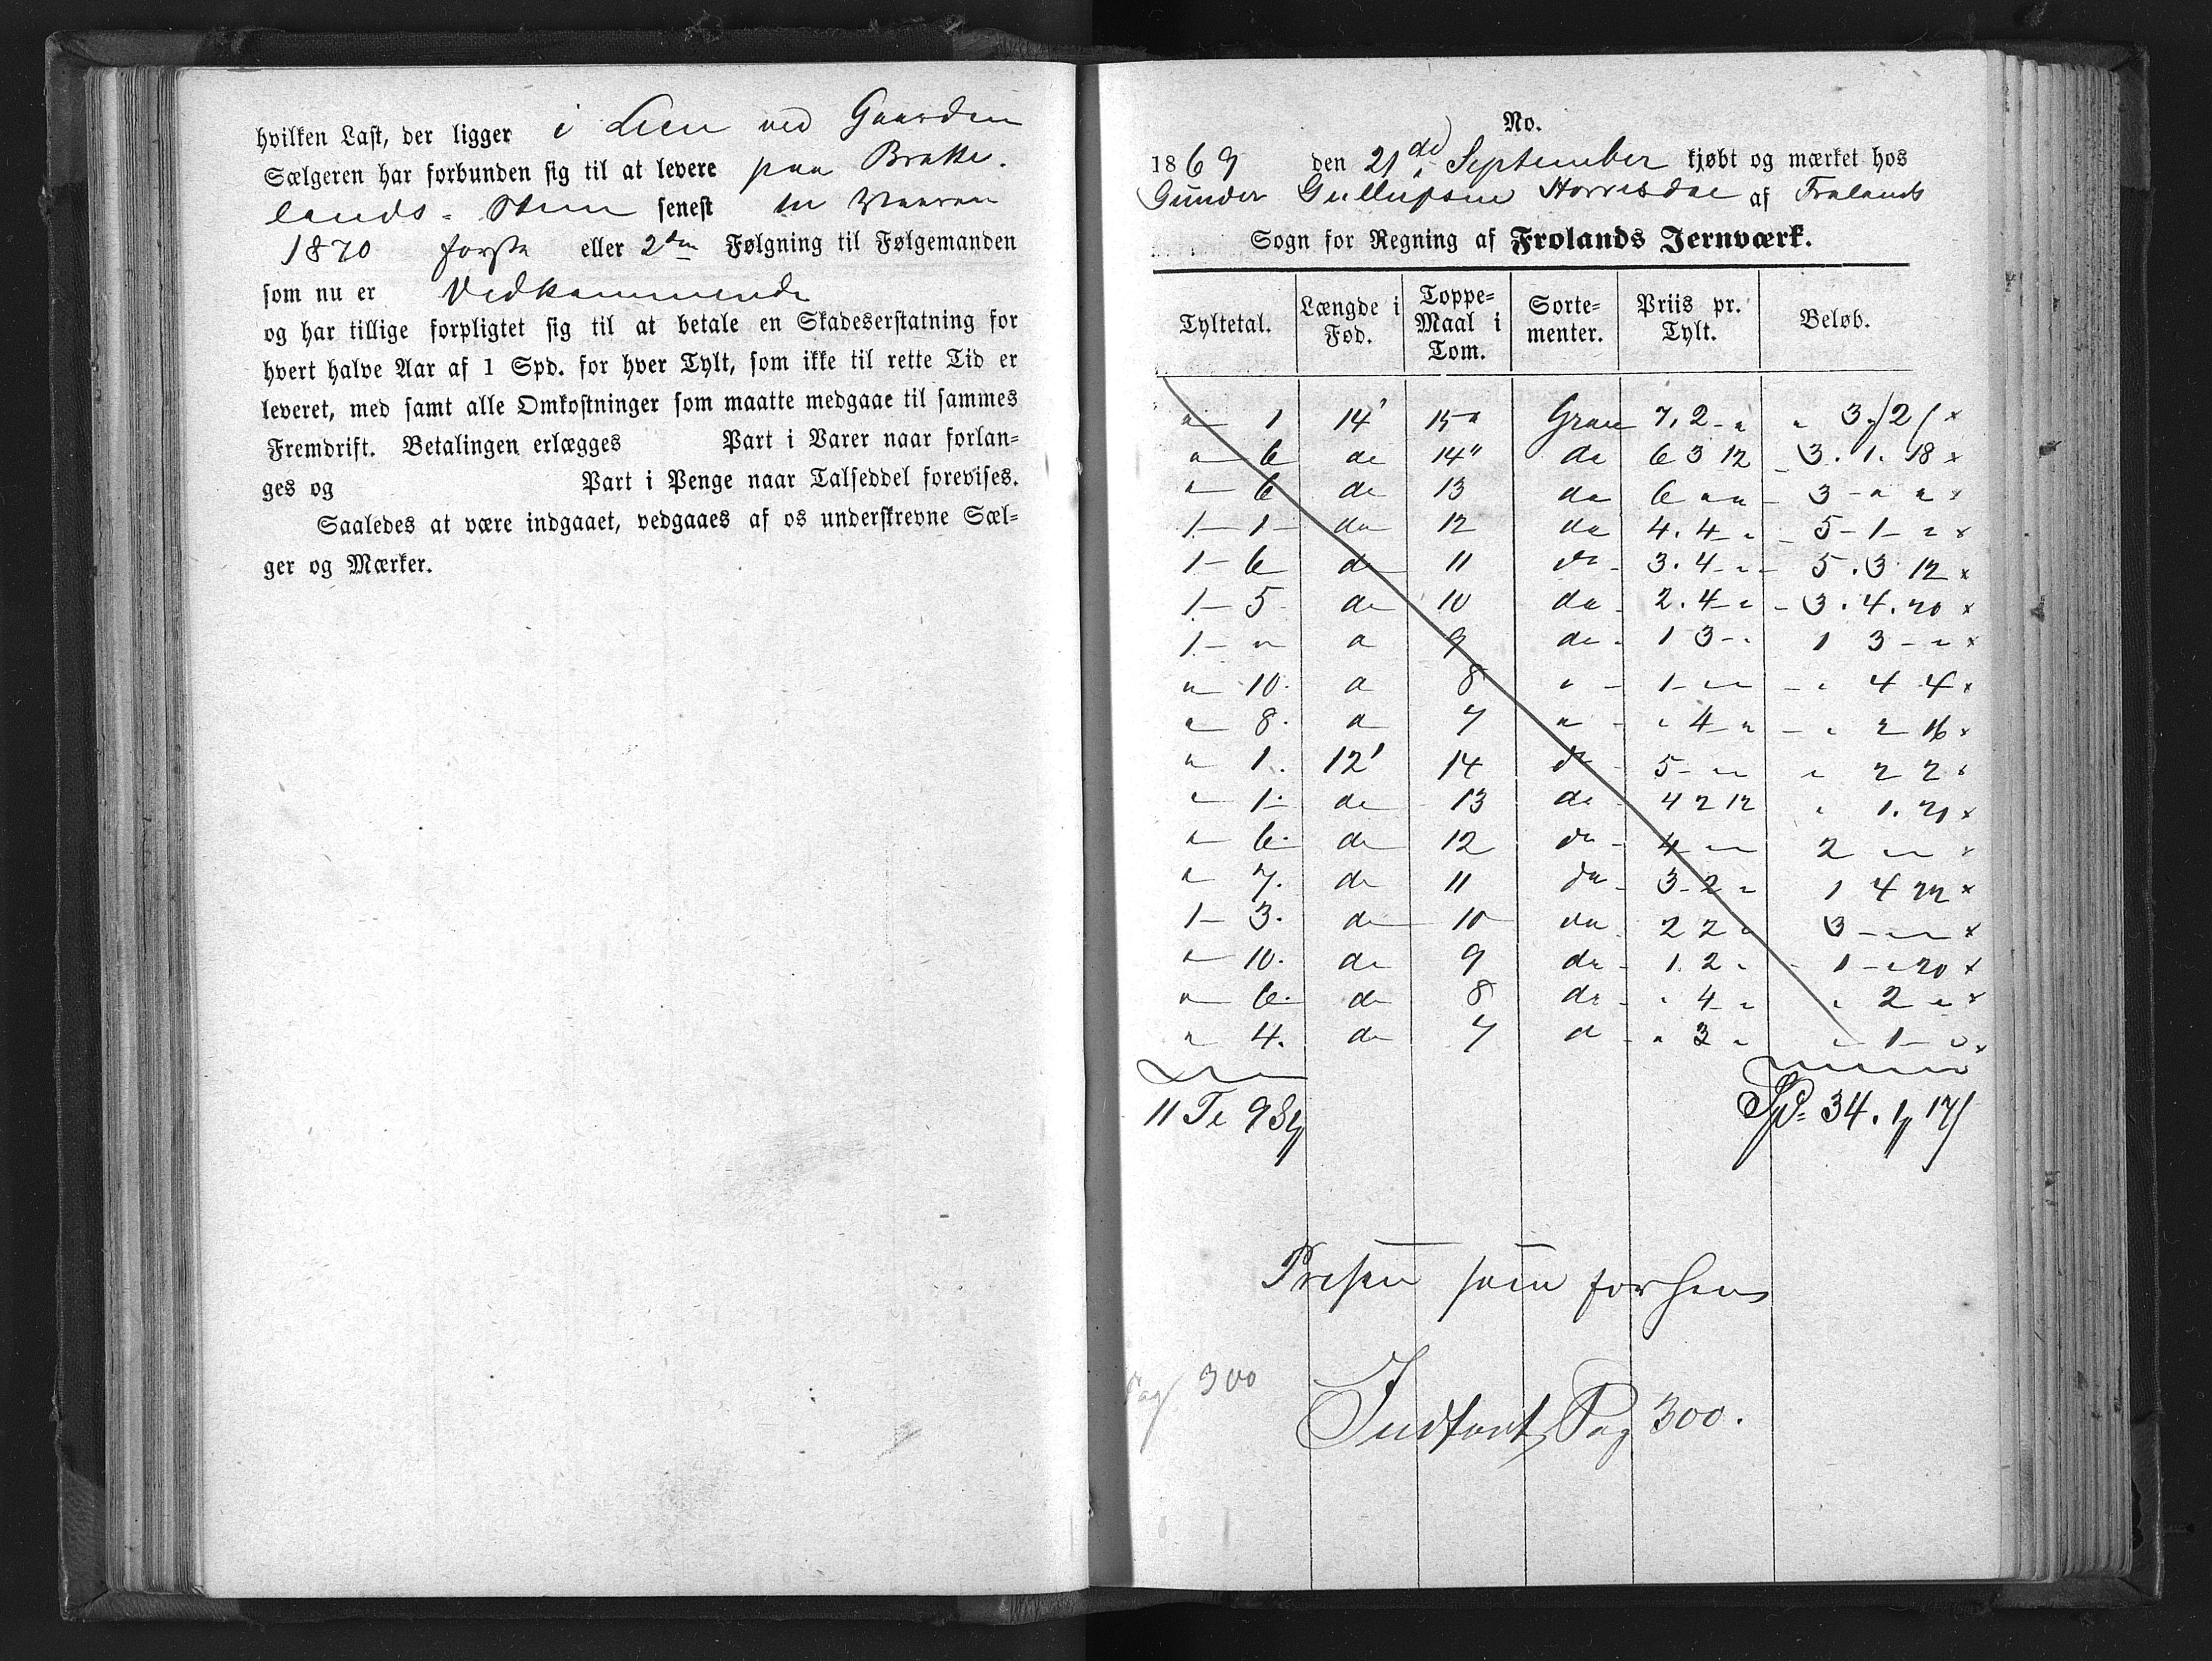 hvilken Last, der ligger i Leen ved Gaarden
Sælgeren har forbunden sig til at levere paa Brække-
lands-Støen senest til Vaaren
1870 første eller 2den Følgning til Følgemanden
som nu er Vedkommende
og har tillige forpligtet sig til at betale en Skadeserstatning for
hvert halve Aar af 1 Spd. for hver Tylt, som ikke til rette Tid er
leveret, med samt alle Omkostninger som maatte medgaae til sammes
Fremdrift. Betalingen erlægges Part i Varer naar forlan-
ges og Part i Penge naar Talseddel forevises.
Saaledes at være indgaaet, vedgaaes af os underskrevne Sæl-
ger og Mærker.
No.
1869 den 21de September kjøbt og mærket hos
Gunder af Frolands
Sogn for Regning af Frolands Jernværk.
Tyltetal. Længde i Fod. Toppe-Maal i Tom. Sorte-menter. Priis pr. Tylt. Beløb.
" 1 14' 15" Gran 7. 2 - " " 3 / 2 / ×
" 6 do 14" do 6 3 12 - 3. 1. 18 ×
" 6 do 13 do 6 " " - 3 - " " ×
1 - 1 - do 12 do 4. 4 - " - 5 - 1 - " ×
1 - 6 do 11 do - 3. 4 - " - 5. 3 12 ×
1 - 5 - do 10 do - 2. 4 - " - 3. 4. 20 ×
1 - " " 9 do - 1 3 - " 1 3 - " ×
" 10. " 8 " - 1 - " " - " 4 4 ×
" 8. " 7 " - " 4 " - " 2 16 ×
" 1. 12' 14 do - 5 - " " " 2 2 ×
" 1. do 13 do - 4 2 12 " 1. 21 ×
" 6. do 12 do - 4 - " " 2 " " ×
" 7. do 11 do - 3 - 2 " 1 4 22 ×
1 - 3. do 10 do - 2 2 " 3 - " " ×
" 10. do 9 do - 1. 2 " - 1 - " 20 ×
" 6. do 8 do - " 4 " " 2 " ×
" 4. do 7 d - " 3 " " 1 - " ×
11 Te 9 St Spd. 34. 1/ 17/
Prisen som forhen
Pag 300
Indført Pag 300.